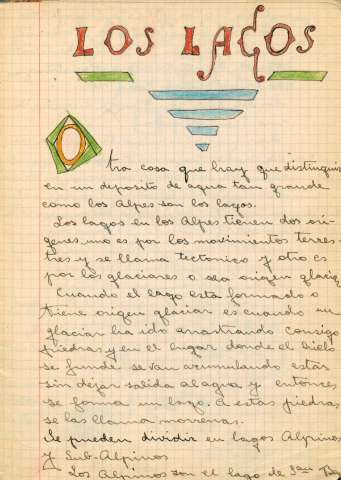 LOS LAGOS
Otra cosa que hay que distinguir
en un deposito de agua tan grande
como los Alpes son los lagos.
Los lagos en los Alpes tienen dos orí-
genes, uno es por los movimientos terres-
tres y se llama tectonico y otro es
por los glaciares o sea origen glaciar
Cuando el lago esta formado o
tiene origen glaciar es cuando un
glaciar ha ido arrastrando consigo
piedras y en el lugar donde el hielo
se funde se van acumulando estas
sin dejar salida al agua y entonces
se forma un lago. A estas piedras
se las llama morrenas.
Se pueden dividir en lagos Alpinos
y Sub-Alpinos
Los Alpinos son el lago de